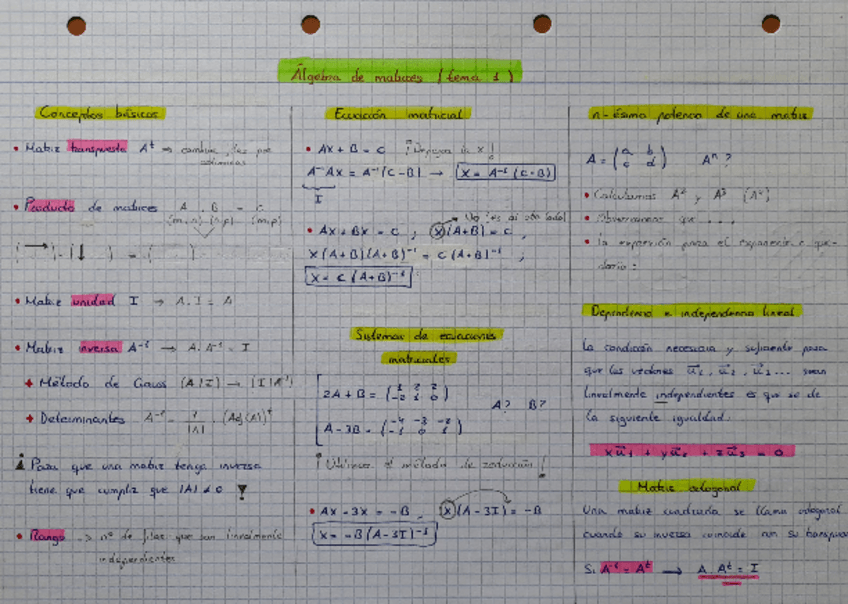 Álgebra de matrices (tema 1)
Conceptos básicos
• Matriz transpuesta Aᵗ → cambiar filas por
columnas
• Producto de matrices A . B = C
(m,n) (n,p) (m,p)
( → ) · ( ↓ ) = ( )
• Matriz unidad I → A . I = A
• Matriz inversa A⁻¹ → A . A⁻¹ = I
+ Método de Gauss (A|I) → (I|A⁻¹)
+ Determinantes A⁻¹ = 1/|A| . (Adj(A))ᵗ
¡ Para que una matriz tenga inversa
tiene que cumplir que |A| ≠ 0 !
• Rango → nº de filas que son linealmente
independientes
Ecuación matricial
• AX + B = C ¡Despeja la X!
A⁻¹AX = A⁻¹(C-B) → X = A⁻¹(C-B)
I
No es al otro lado!
• AX + BX = C ; X(A+B) = C ;
X(A+B)(A+B)⁻¹ = C(A+B)⁻¹ ;
X = C(A+B)⁻¹
Sistemas de ecuaciones
matriciales
2A + B = ( 1 2 2
-2 1 0 )
A? B?
A - 3B = ( -4 -3 -2
-1 0 )
¡Utilizar el método de reducción!
• AX - 3X = -B , X(A - 3I) = -B
X = -B(A-3I)⁻¹
n-ésima potencia de una matriz
A = ( a b
c d ) Aⁿ ?
• Calculamos A² y A³ (A⁴)
• Observamos que ...,
• la expresión para el exponencial que-
daría :
Dependencia e independencia lineal
La condición necesaria y suficiente para
que los vectores u⃗₁, u⃗₂, u⃗₃... sean
linealmente independientes es que se de
la siguiente igualdad:
xu⃗₁ + yu⃗₂ + zu⃗₃ = 0
Matriz ortogonal
Una matriz cuadrada se llama ortogonal
cuando su inversa coincide con su transpues
Si A⁻¹ = Aᵗ → A . Aᵗ = I